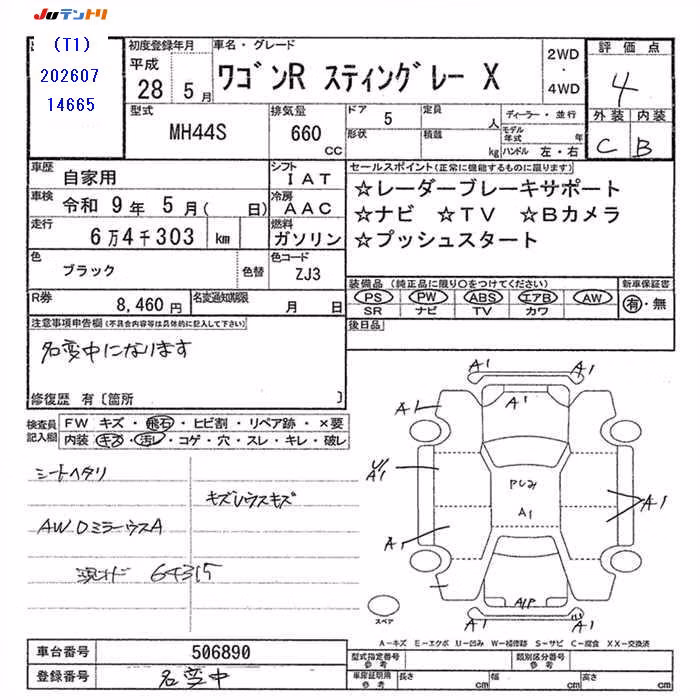 JUテントリ
(T1)
202607
14665
初度登録年月
平成
28 5月
車名・グレード
ワゴンR スティングレー X
2WD
・
4WD
評価点
4
外装 内装
C B
型式
MH44S
排気量
660
CC
ドア 5
形状
定員 人
積載 kg
ディーラー・並行
モデル年式 年
ハンドル 左・右
車歴
自家用
シフト
IAT
車検
令和 9年 5月( 日)
冷房
AAC
走行
6万4千303 km
燃料
ガソリン
色
ブラック
色替
色コード
ZJ3
R券
8,460円
名変通知期限
月 日
セールスポイント(正常に機能するものに限ります)
☆レーダーブレーキサポート
☆ナビ ☆TV ☆Bカメラ
☆プッシュスタート
装備品(純正品に限り○をつけてください)
PS PW ABS エアB AW
SR ナビ TV カワ
新車保証書
有・無
後日品
注意事項申告欄(不具合内容等は具体的に記入して下さい)
名変中になります
修復歴 有〔箇所 〕
検査員
記入欄
FW キズ・飛石・ヒビ割・リペア跡・×要
内装 キズ・汚レ・コゲ・穴・スレ・キレ・破レ
シートヘタリ
キズレウスキズ
AWDミラーウスA
現メード 64315
A1 A1
A1
A1
U/A1
Pしみ
A1
A1
A1
A/P
A1 A1
スペア
A-キズ E-エクボ U-凹み W-補修跡 S-サビ C-腐食 XX-交換済
車台番号
506890
登録番号
名変中
型式指定番号
参考
類別区分番号
参考
車庫証明用
参考
長さ cm
幅 cm
高さ cm